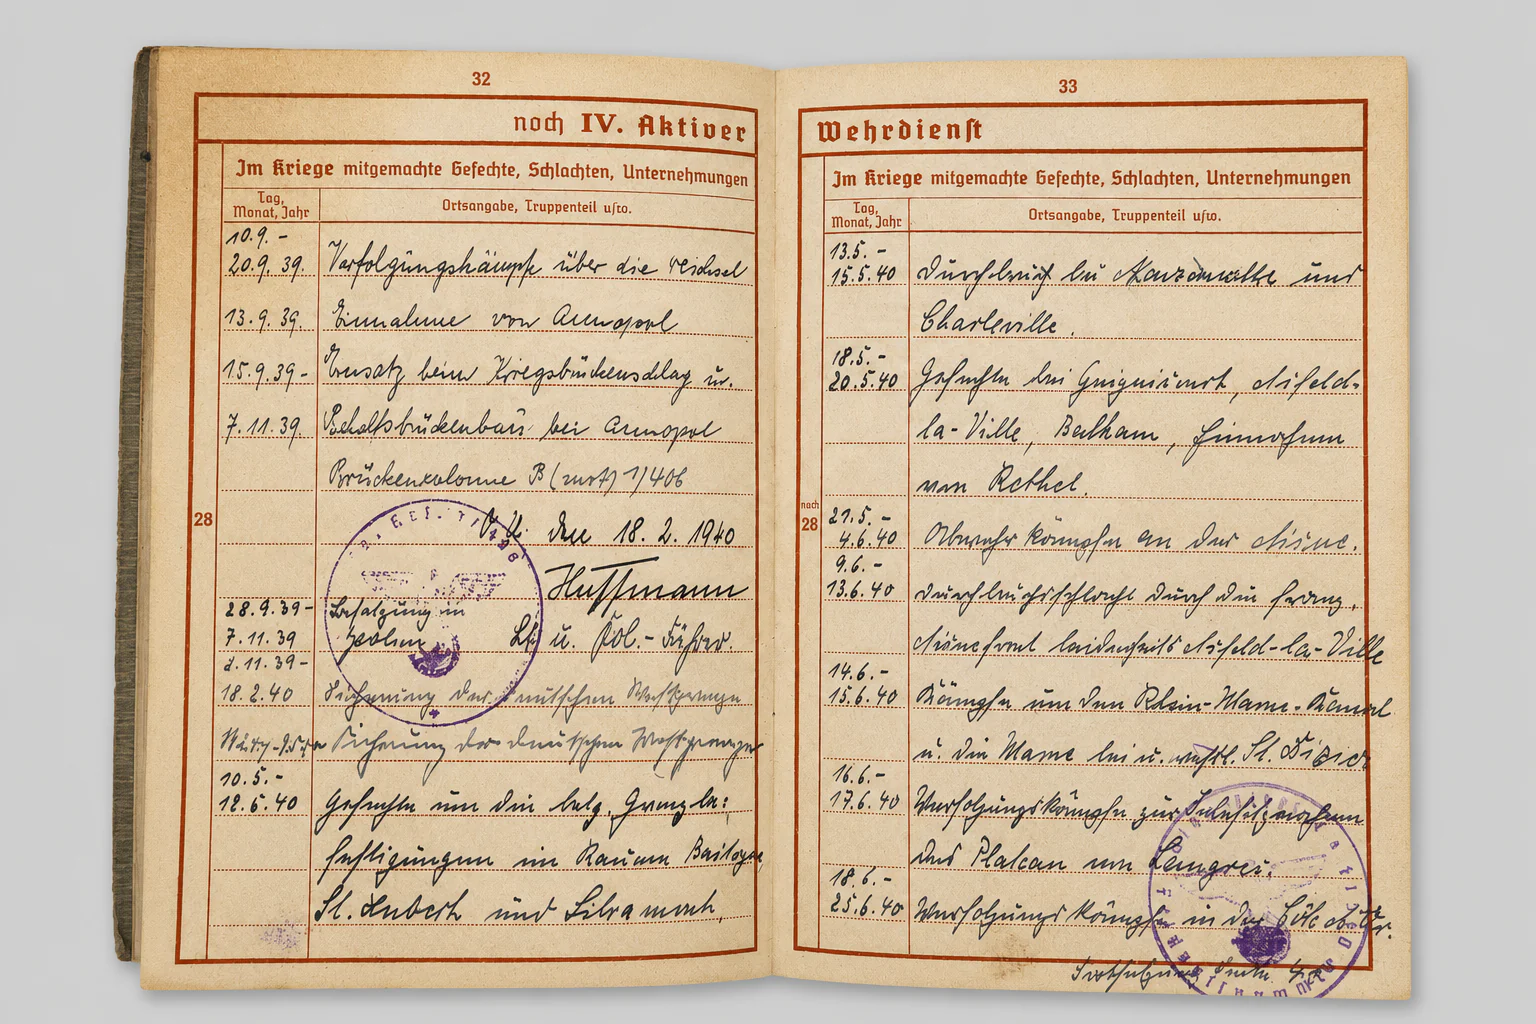 32
noch IV. Aktiver
Im Kriege mitgemachte Gefechte, Schlachten, Unternehmungen
Tag, Monat, Jahr
Ortsangabe, Truppenteil usw.
10.9. -
20.9. 39. Verfolgungskämpfe über die Weichsel
13.9. 39. Einnahme von Annopol
15.9.39- Einsatz beim Kriegsbrückenschlag u.
7.11.39. Behelfsbrückenbau bei Annopol
Brückenkolonne B (mot) 1/406
28
O.U. den 18. 2. 1940
Huffmann
28.9.39- Besatzung in
7.11.39 Polen Lt. u. Kol.- Führer.
.11.39-
18.2.40 Sicherung der deutschen Westgrenze
Sicherung der deutschen Westgrenze
10.5.-
12.5.40 Gefechte um die belg. Grenzbe=
festigungen im Raume
St. Hubert und
33
Wehrdienst
Im Kriege mitgemachte Gefechte, Schlachten, Unternehmungen
Tag, Monat, Jahr
Ortsangabe, Truppenteil usw.
13.5.-
15.5.40 Durchbruch bei und
Charleville.
18.5.-
20.5.40 Gefechte bei Guignicourt, Asfeld-
la-Ville, Balham, Einnahme
von Rethel.
noch
28
21.5.-
4.6.40 Abwehrkämpfe an der Aisne.
9.6.-
13.6.40 Durchbruchsschlacht durch die franz.
Aisnefront beiderseits Asfeld-la-Ville
14.6.-
15.6.40 Kämpfe um den Rhein-Marne-Kanal
u. die Marne bei u. westl. St. Dizier
16.6.-
17.6.40 Verfolgungskämpfe zur Inbesitznahme
des Plateau von Langres.
18.6.-
25.6.40 Verfolgungskämpfe in der Côte d'Or.
Fortsetzung Seite